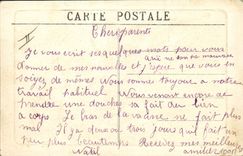 CARTE POSTALE
Chers parents
Je vous écrit ces quelques mots pour vous
donner de mes nouvelles et j'espère que vous en
soiyez de mêmes Nous sommes toujours à notre
travail habituel Nous venont encore de
prendre une douches sa fait du bien
a corps Le bras de la vaccine ne fait plus
mal Il y a deux ou trois jours qui fait un
peu plus beau temps Recevez mes meilleurs
amitiés